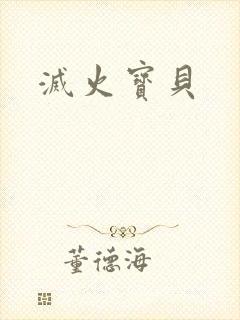 滅火寶貝
董德海